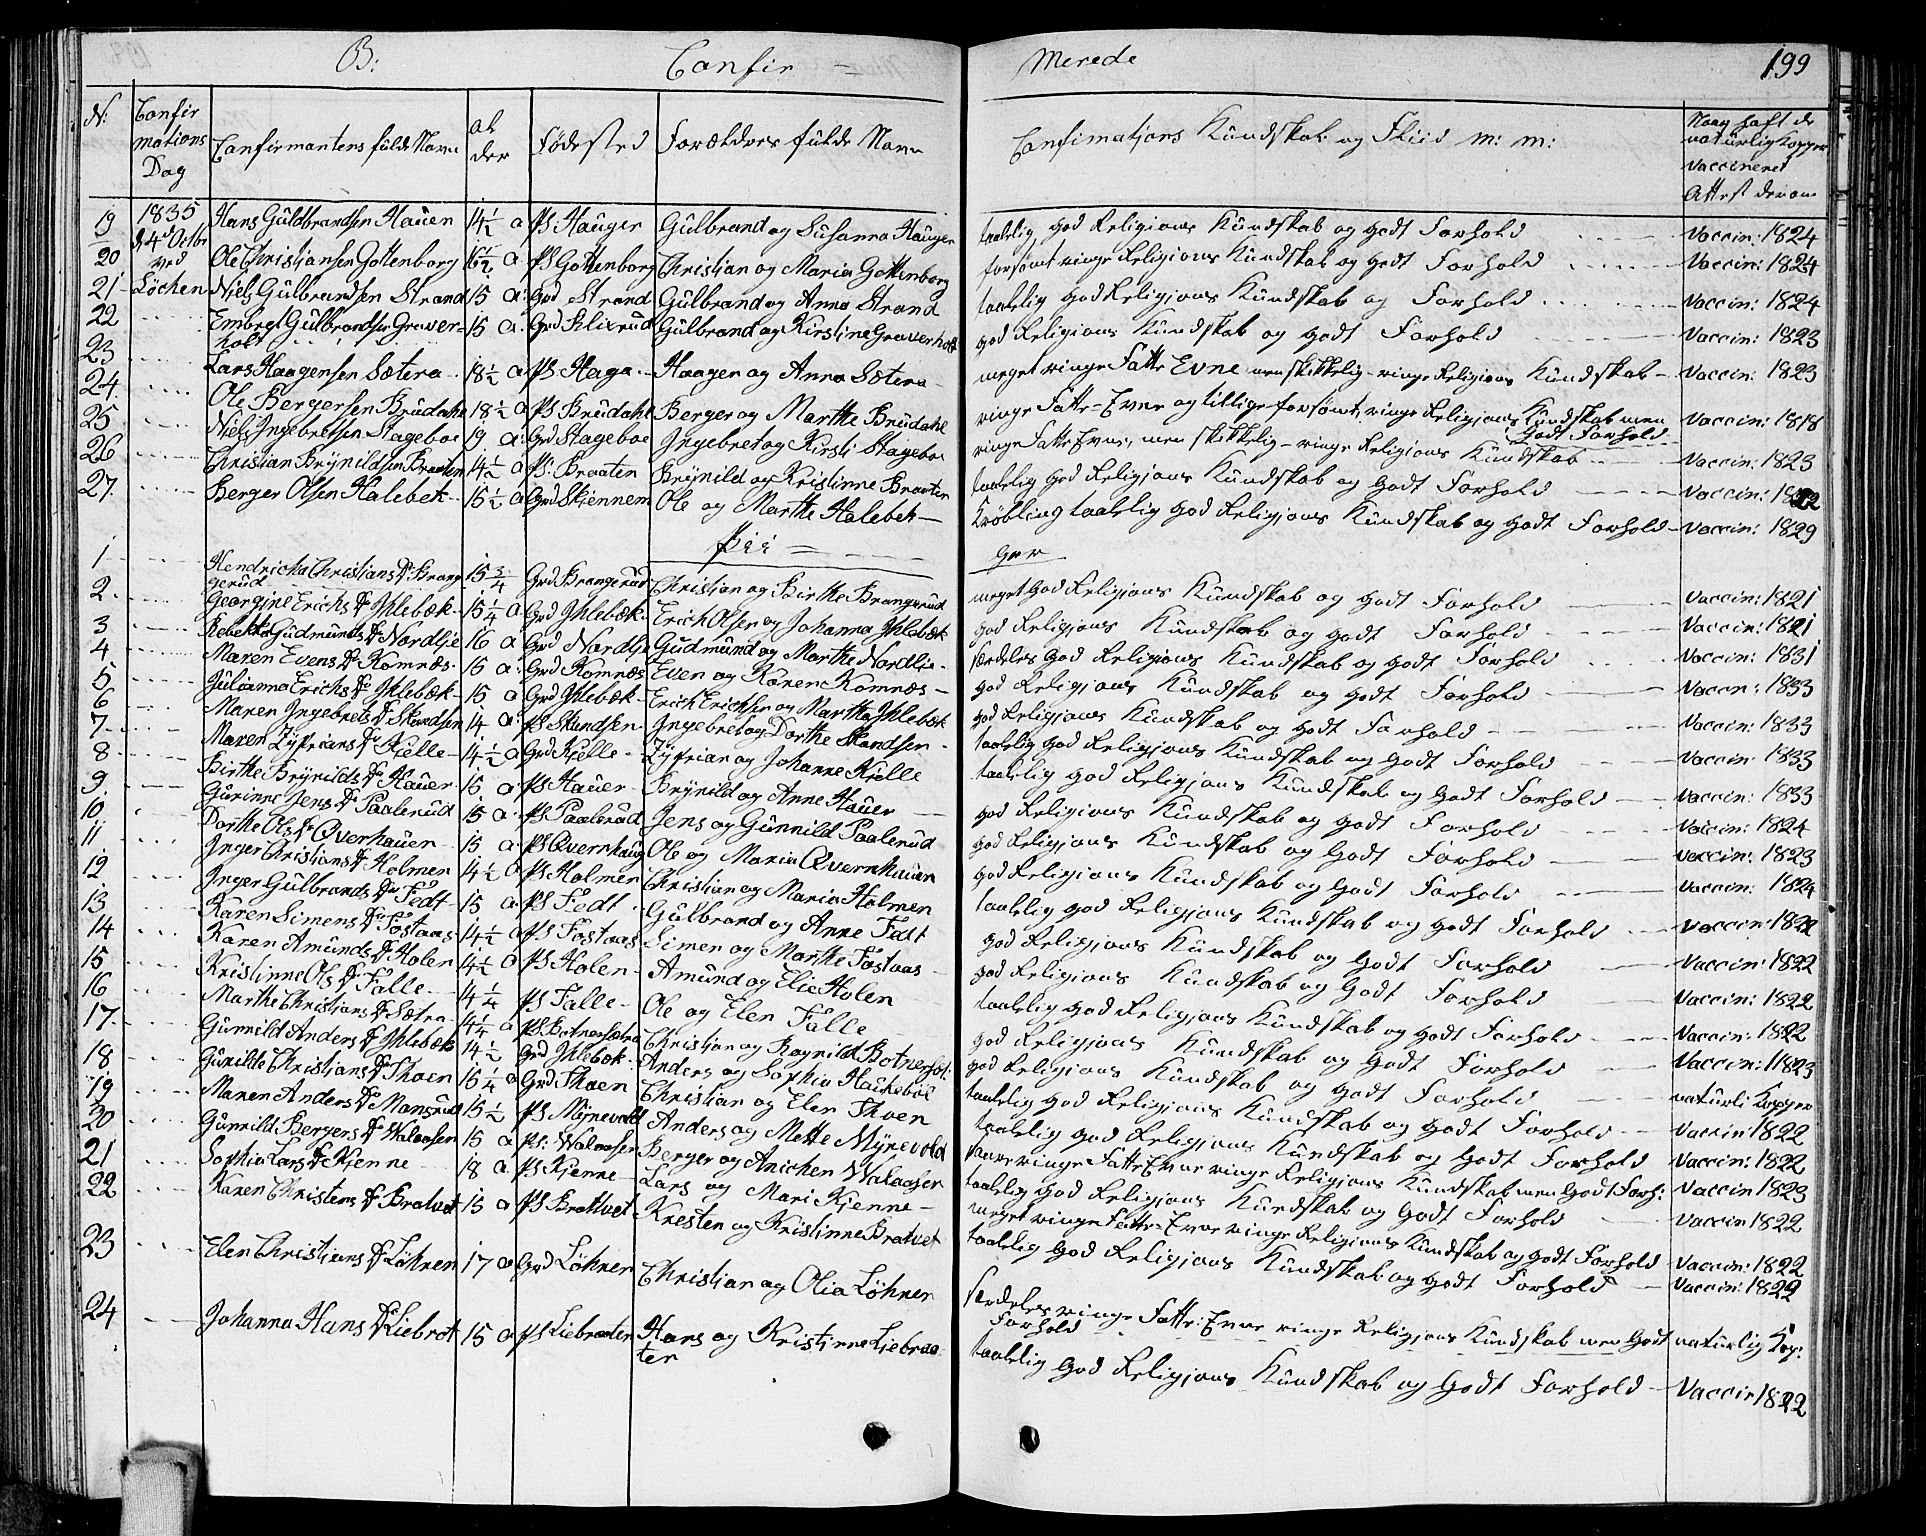 B: Confir = Merede 199
N: Confirmations Dag Confirmantens fulde Navn alder Fødested Forældres fulde Navn Confirmatjons Kundskab og Fliid m: m: Naag haft de naturlig Kopper vaccineret Attest derom
19 1835 Hans Guldbrandsen Hauen 14½ a PS Hauger Gulbrand og Susanna Hauger taalelig god Religions Kundskab og godt Forhold Vaccin: 1824
20 d 4d Octbr ved Ole Christiansen Gottenborg 16½ a PS Gottenborg Christian og Maria Gottenborg forsømt ringe Religions Kundskab og godt Forhold Vaccin: 1824
21 Löchen Niels Gulbrandsen Strand 15 a Grd Strand Gulbrand og Anna Strand taalelig god Religjons Kundskab og Forhold Vaccin: 1824
22 Embret Gulbrandsen Graverholt 15 a Grd Klixrud Gulbrand og Kirstine Graverholt god Religions Kundskab og godt Forhold Vaccin: 1823
23 Lars Haagensen Sætera 18½ a PS Haga Haagen og Anna Sætera meget ringe Fatte Evne men skikkelig - ringe Religions Kundskab Vaccin: 1823
24 Ole Bergersen Brudahl 18½ a PS Brudahl Berger og Marthe Brudahl ringe Fatte-Evne og tillige forsömt, ringe Religjons Kundskab men Godt Forhold Vaccin: 1818
25 Niels Jngebretsen Stageboe 19 a Grd Stageboe Jngebret og Kirsti Stageboe ringe Fatte Evne, men skikkelig - ringe Religions Kundskab Vaccin: 1823
26 Christian Brÿnildsen Braaten 14½ a PS: Braaten Brÿnild og Kristinne Braaten taalelig god Religjons Kundskab og Godt Forhold Vaccin: 1822
27 Berger Olsen Halebek 15½ a Grd Skiennem Ole og Marthe Halebek Kröbling taalelig god Religjons Kundskab og Godt Forhold Vaccin: 1829
Pii = ger
1 Hendricha Christians Dr Brangerud 15¾ Grd Brangerud Christian og Birthe Brangerud meget God Religjons Kundskab og Godt Forhold Vaccin: 1821
2 Georgine Erichs Dr Jhlebæk 15¼ a Grd Jhlebæk Erich Olsen og Johanna Jhlebæk God Religjons Kundskab og godt Forhold Vaccin: 1821
3 Rebekka Gudmunds Dr Nordlie 16 a Grd Nordlje Gudmund og Marthe Nordlie særdeles God Religions Kundskab og godt Forhold Vaccin: 1831
4 Maren Evens Dr Komnæs 15 a: Grd Komnæs Even og Karen Komnæs God Religjons Kundskab og Godt Forhold Vaccn: 1833
5 Julianna Erichs Dr Jhlebæk 15 a Grd Jhlebæk Erich Erichsen og Martha Jhlebæk God Religjons Kundskab og Godt Forhold Vaccin: 1833
6 Maren Jngebrets Dr Skandsen 14 a: PS Skandsen Jngebret og Dorthe Skandsen taalelig God Religjons Kundskab og Godt Forhold Vaccin 1833
7 Maren Zÿfrians Dr Kielle 14½ a Grd Kielle Zÿfrian og Johanne Kielle taalelig god Religjons Kundskab og Godt Forhold Vaccin: 1833
8 Birthe Brÿnilds Dr Hauer 15 a PS Hauer Brÿnild og Anne Hauer god Religions Kundskab og godt Forhold Vaccin: 1824
9 Gurinne Jens Dr Paalerud 15 a PS Paalerud Jens og Gunnild Paalerud god Religjons Kundskab og Godt Forhold Vaccin: 1823
10 Dorthe Ols Dr Qverhauen 15 a PS Qvernhaug Ole og Maria Qvernhauen God Religions Kundskab og Godt Forhold Vaccin: 1824
11 Jnger Christians Dr Holmen 14½ a PS Holmen Christian og Maria Holmen taalelig god Religjons Kundskab og Godt Forhold Vaccin: 1822
12 Jnger Gulbrands Dr Fedt 15 a PS Fedt Gulbrand og Anne Fedt God Religjons Kundskab og Godt Forhold Vaccin: 1822
13 Karen Simens Dr Fostaas 14½ a PS Fostaas Simen og Marthe Fostaas god Religions Kundskab og Godt Forhold Vaccin: 1822
14 Karen Amunds Dr Holen 14½ a PS Holen Amund og Elie Holen taalelig god Religjons Kundskab og godt Forhold Vaccin: 1822
15 Kristinne Ols Dr Falle 14¼ PS Falle Ole og Elen Falle god Religjons Kundskab og Godt Forhold Vaccin: 11823
16 Marthe Christians Dr Sætra 14¼ a PS Botnersætra Christian og Ragnild Botnersæt: god Religions Kundskab og Godt Forhold naturli Kopper
17 Gunnild Anders Dr Jhlebæk 14½ Grd Jhlebæk Anders og Sophia Haukeböl taalelig god Religjons Kundskab og Godt Forhold Vaccin 1822
18 Gunilde Christians Dr Skoen 15¼ a Grd Skoen Christian og Elen Skoen taalelig god Religjons Kundskab og Godt Forhold Vaccin: 1822
19 Maren Anders Dr Mansrud 15½ PS Mÿnevold Anders og Mette Mÿnevold saare ringe Fatte Evne ringe Religjons Kundskab men Godt Forh: Vaccin 1823
20 Gunnild Bergers Dr Walaasen 15 a PS: Walaasen Berger og Anichen Walaaser taalelig god Religjons Kundskab og Godt Forhold Vaccin 1822
21 Sophia Lars Dr Kjenne 18 a PS Kjenne Lars og Mari Kjenne meget ringe Fatte-Evne ringe Religions Kundskab og godt Forhold Vaccin: 1822
22 Karen Christens Dr Bratvet 15 a PS Brattvet Kresten og Kristinne Bratvet taalelig God Religjons Kundskab og Godt Forhold Vaccin: 1822
23 Elen Christians Dr Löhnen 17 a Grd Löhner Christian og Olia Löhner særdeles ringe Fatte: Evne ringe Religjons Kundskab men Godt Forhold naturlig Kop:
24 Johanna Hans Dr Liebrot 15 a PS Liebraaten Hans og Kristinne Liebraaten taalelig God Religjons Kundskab og Godt Forhold Vaccin 1822